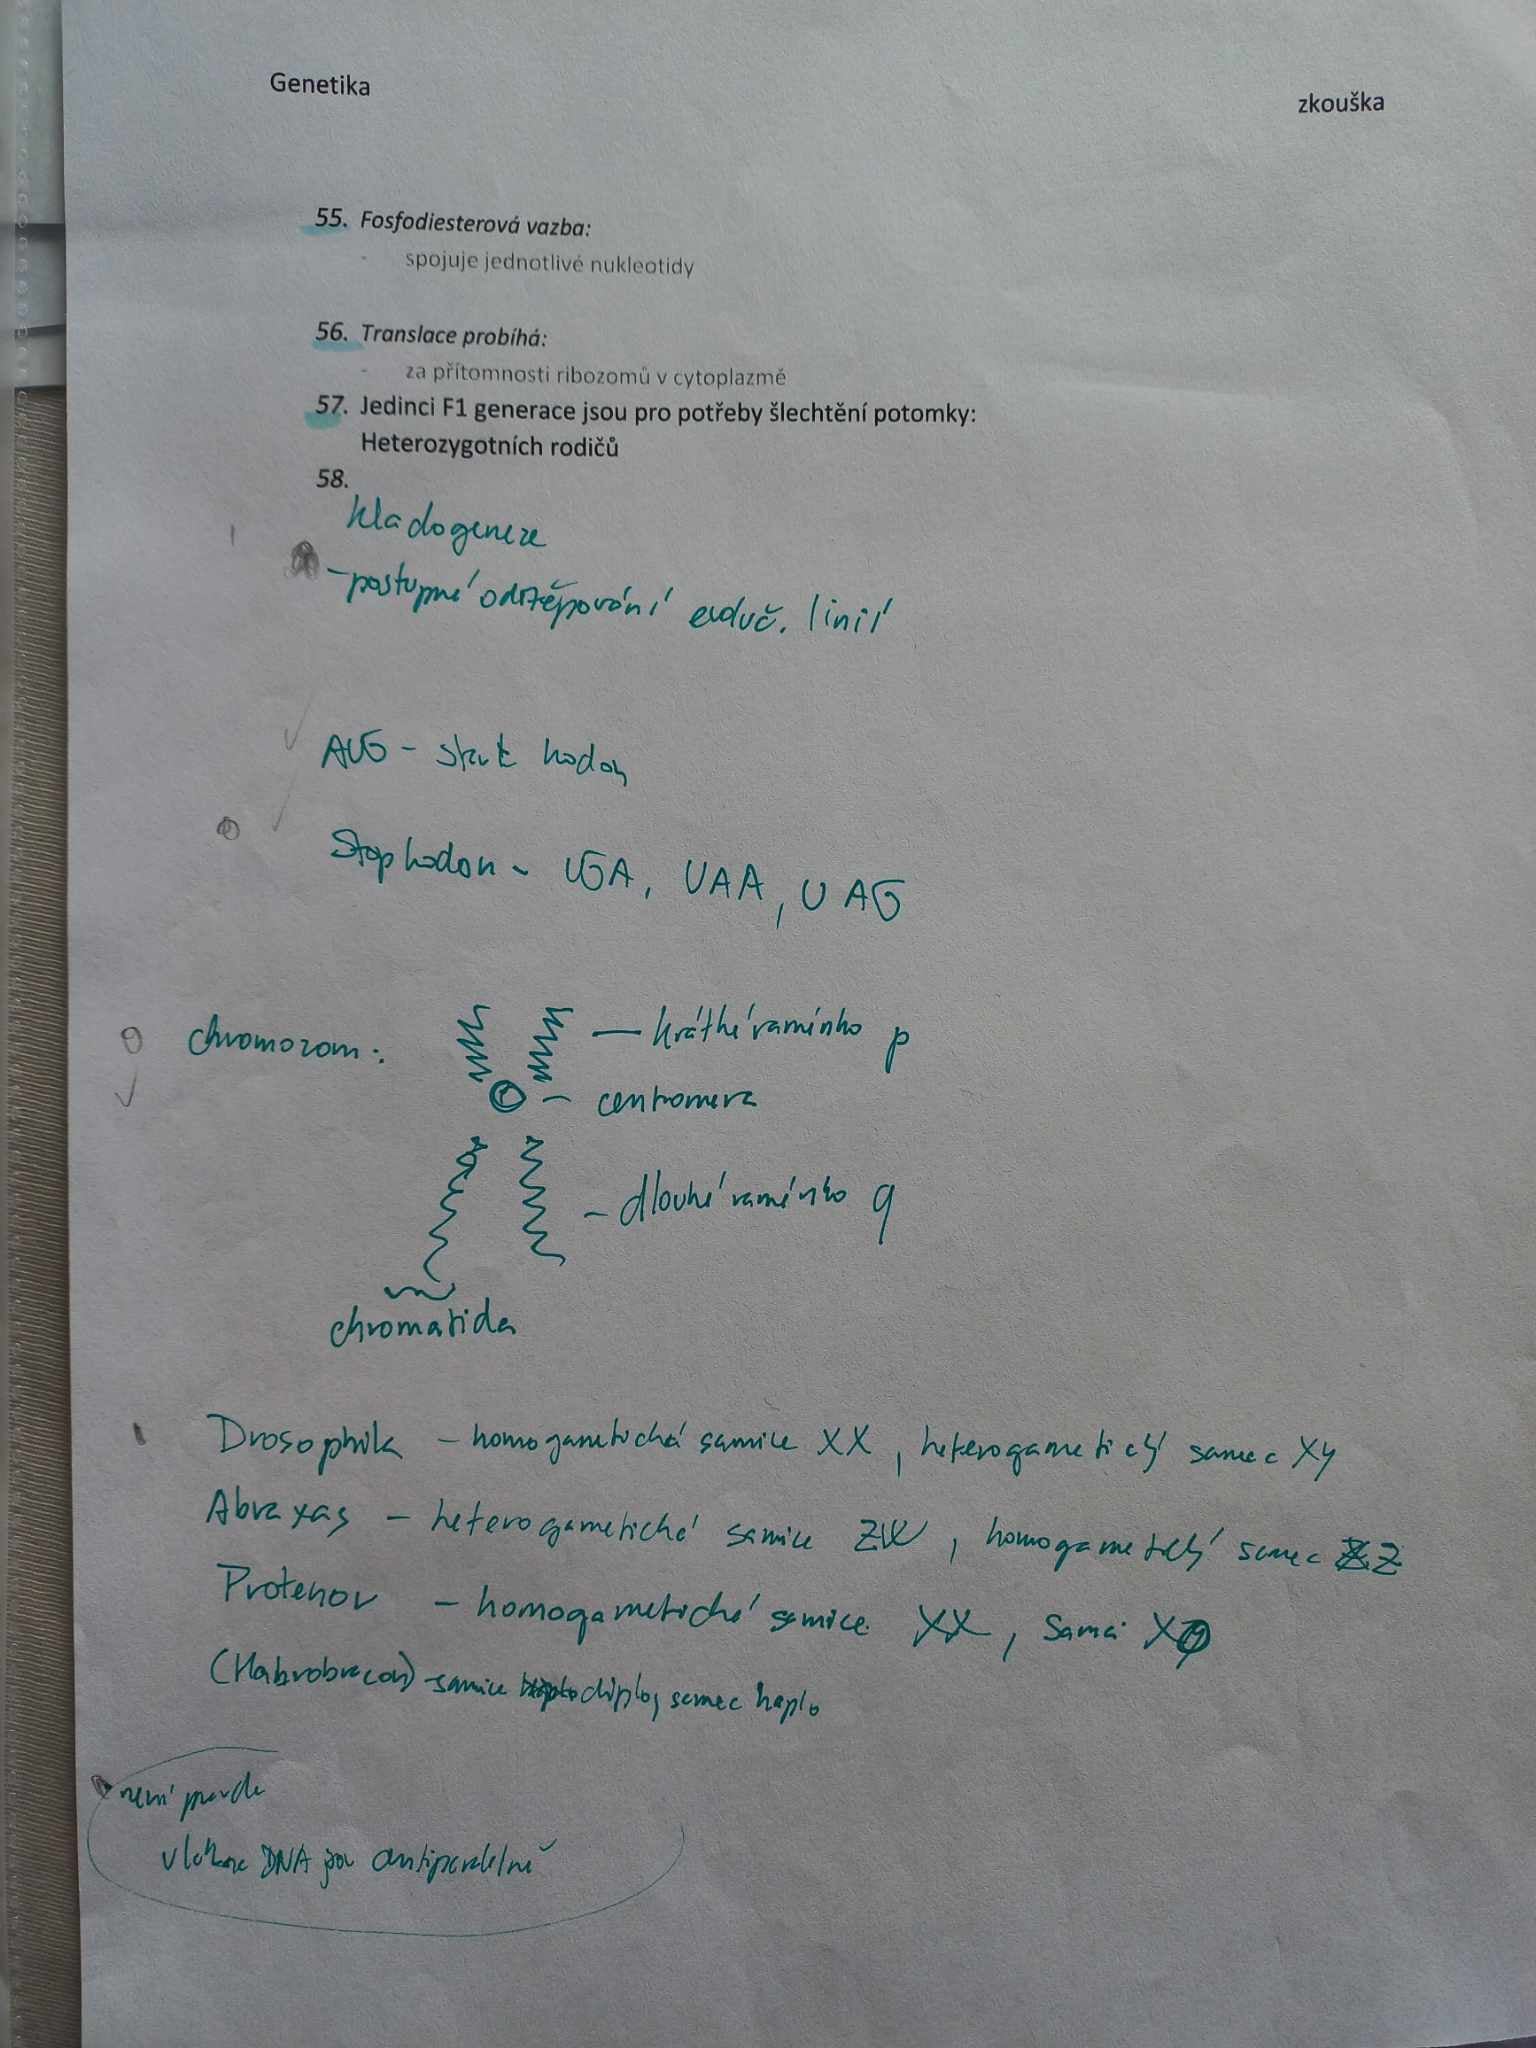 Genetika
zkouška
55. Fosfodiesterová vazba:
- spojuje jednotlivé nukleotidy
56. Translace probíhá:
- za přítomnosti ribozomů v cytoplazmě
57. Jedinci F1 generace jsou pro potřeby šlechtění potomky:
Heterozygotních rodičů
58.
kladogeneze
- postupné odštěpování evoluč. linií
AUG - start kodon
Stop kodon - UGA, UAA, UAG
chromozom:
— krátké raménko p
- centromera
- dlouhé raménko q
chromatida
Drosophila - homogametická samice XX, heterogametický samec XY
Abraxas - heterogametické samice ZW, homogametický samec ZZ
Protenor - homogametické samice XX, samci X0
(Habrobracon) - samice diplo, samec haplo
není pravda
vlákna DNA jsou antiparalelně